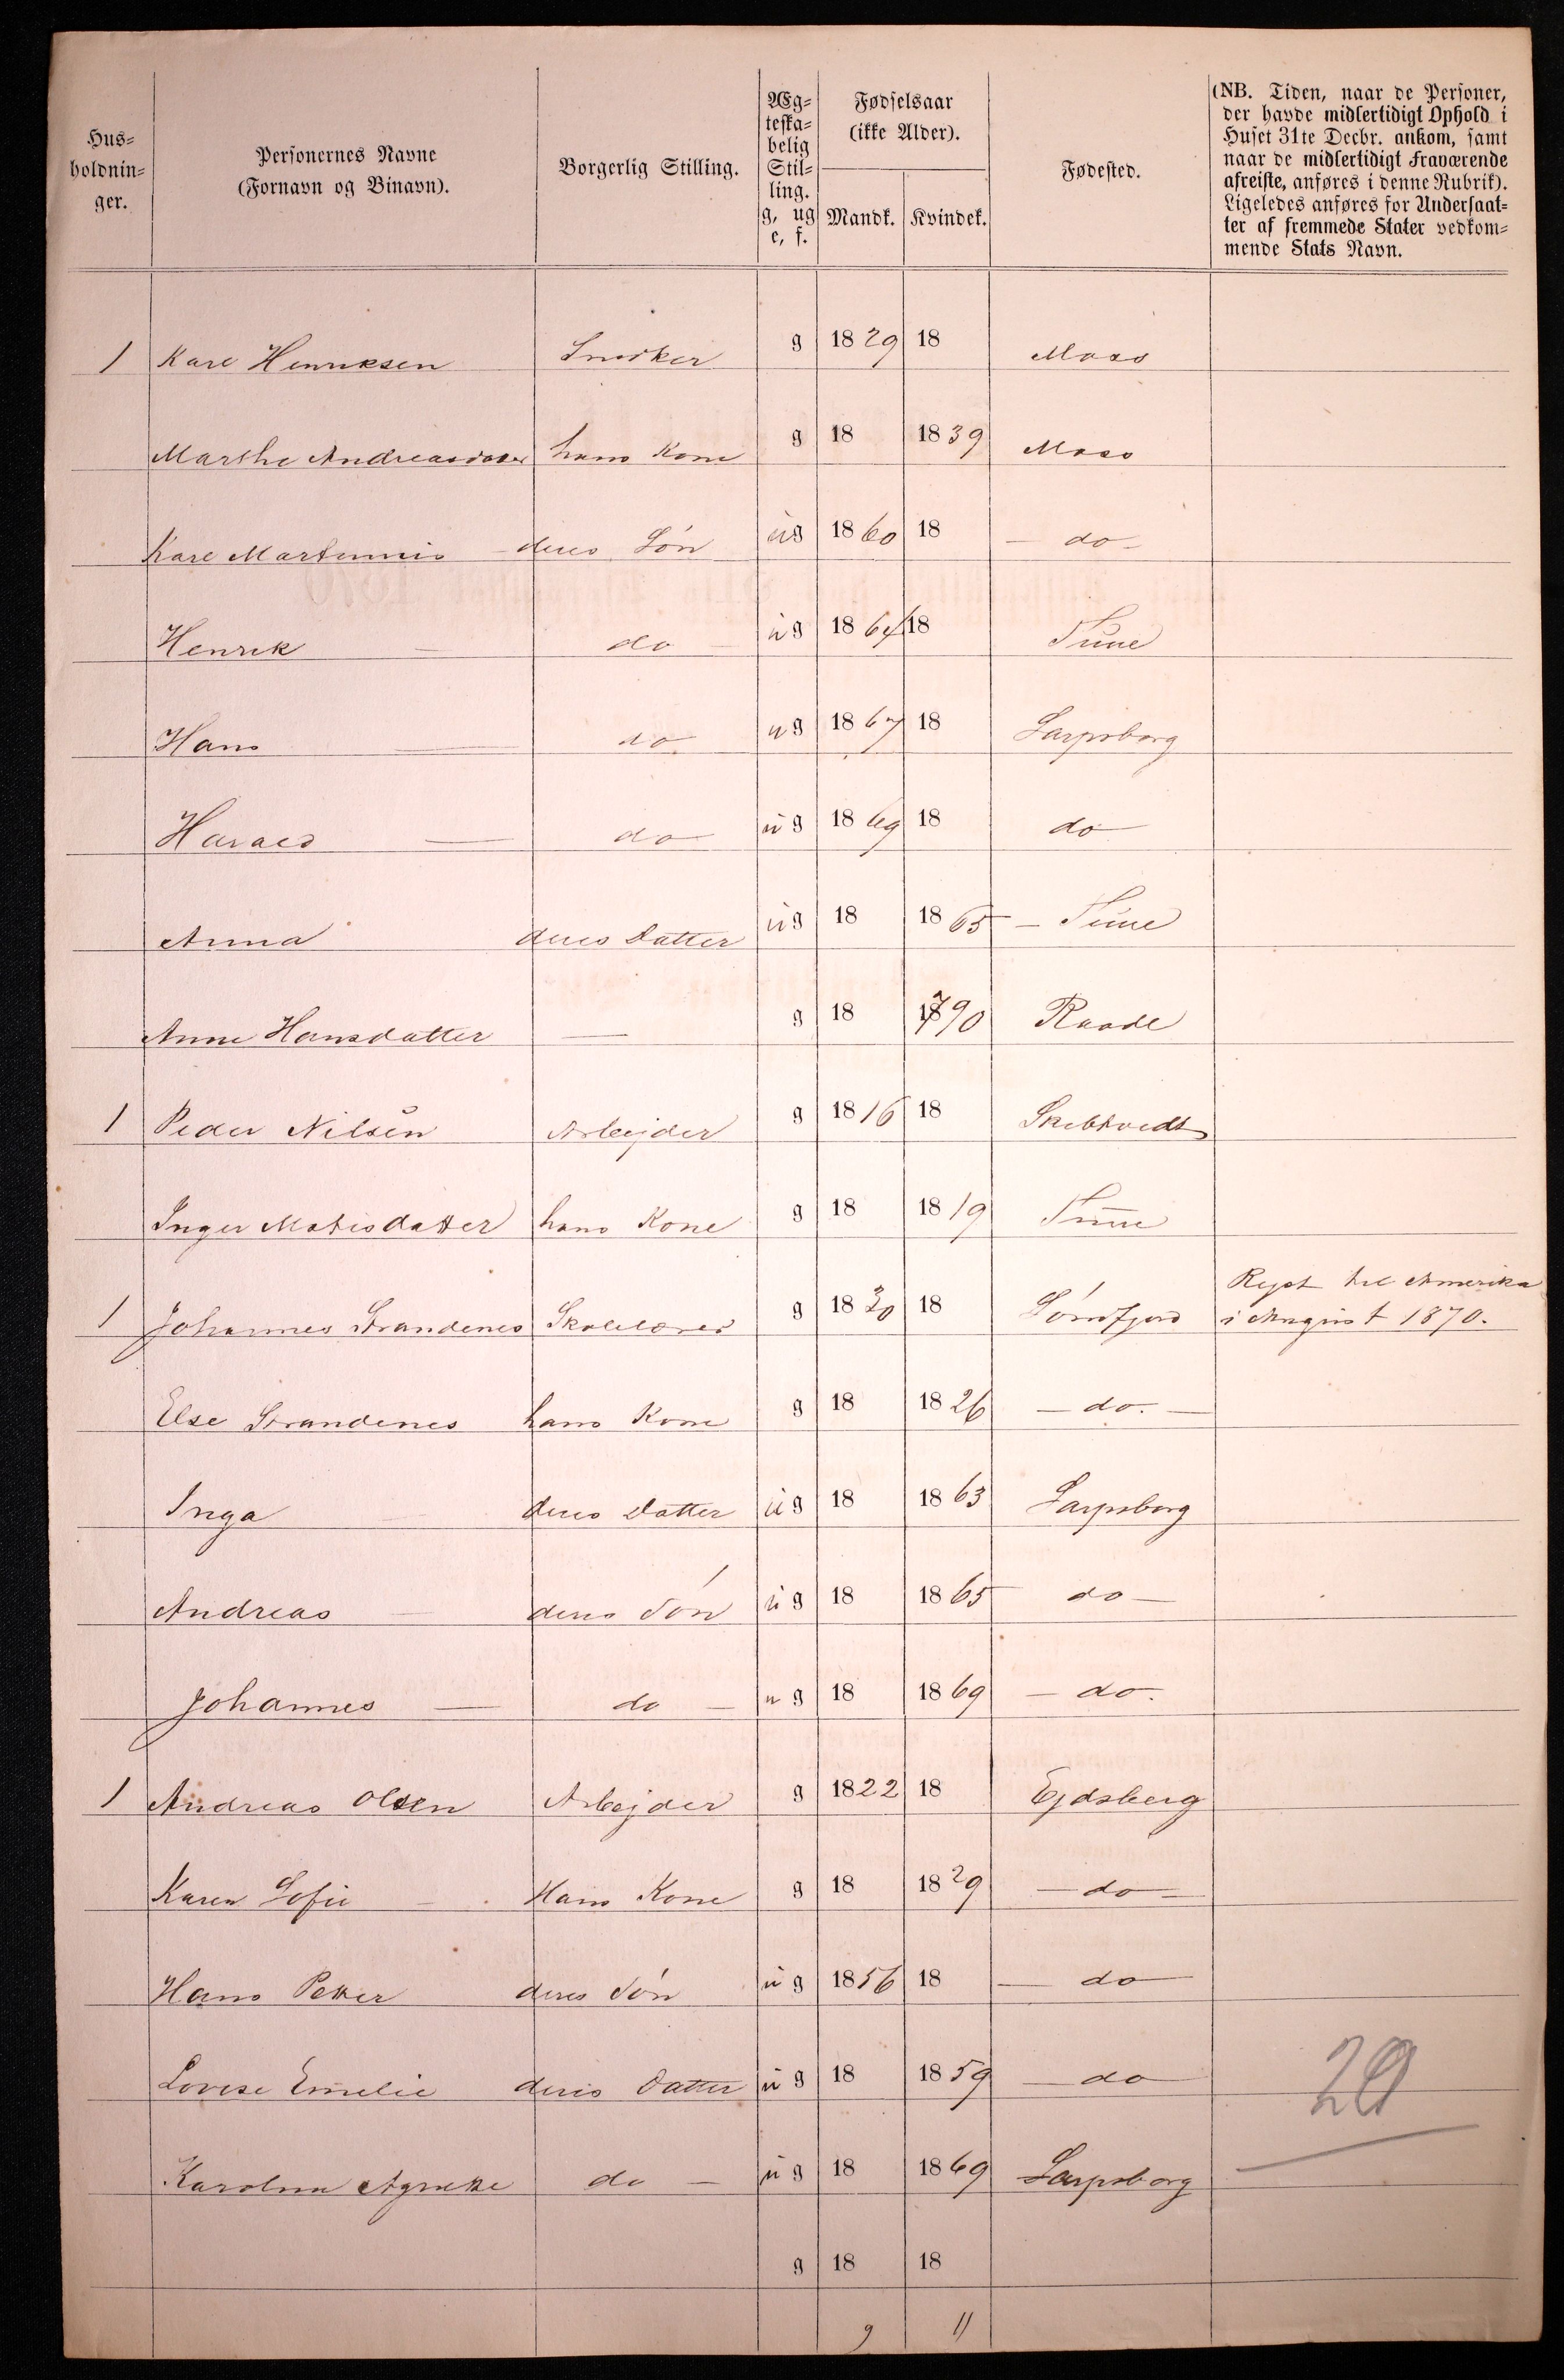 Hus-
holdnin-
ger.
Personernes Navne
(Fornavn og Binavn).
Borgerlig Stilling.
Æg-
teska-
belig
Stil-
ling.
g, ug
e, f.
Fødselsaar
(ikke Alder).
Mandk. Kvindek.
Fødested.
(NB. Tiden, naar de Personer,
der havde midlertidigt Ophold i
Huset 31te Decbr. ankom, samt
naar de midlertidigt Fraværende
afreiste, anføres i denne Rubrik).
Ligeledes anføres for Undersaat-
ter af fremmede Stater vedkom-
mende Stats Navn.
1 Karl Henriksen Snedker g 1829 18 Moss
Marthe Andreasdatter hans Kone g 18 1839 Moss
Karl Martinius deres Søn ug 1860 18 — do —
Henrik — do — ug 1864 18 Tune
Hans — do ug 1867 18 Sarpsborg
Harald — do ug 1869 18 do
Anna deres Datter ug 18 1865 — Tune
Anne Hansdatter — g 18 1790 Raade
1 Peder Nilsen Arbejder g 1816 18 Skibtvedt
Inger Matisdatter hans Kone g 18 1819 Tune
1 Johannes Strandenes Skolelærer g 1830 18 Søndfjord Rejst til Amerika
i August 1870.
Else Strandenes hans Kone g 18 1826 — do. —
Inga deres Datter ug 18 1863 Sarpsborg
Andreas — deres Søn ug 18 1865 do —
Johannes — do — ug 18 1869 — do.
1 Andreas Olsen Arbejder g 1822 18 Ejdsberg
Karen Sofie — Hans Kone g 18 1829 — do —
Hans Petter deres Søn ug 1856 18 — do
Lovise Emelie deres Datter ug 18 1859 — do
20
Karoline Agnette do — ug 18 1869 Sarpsborg
g 18 18
9 11